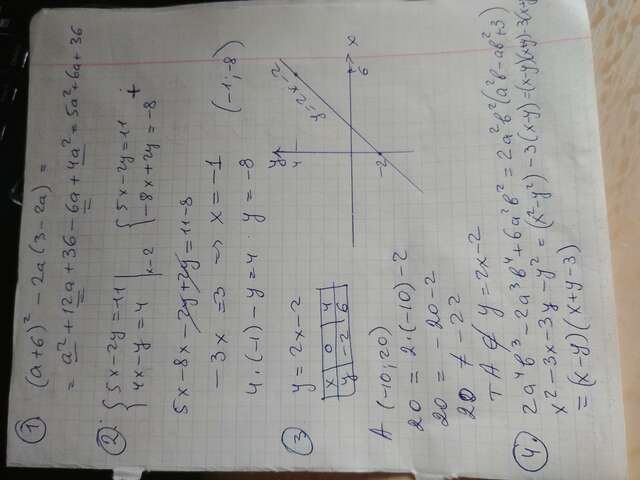 1) (a+6)² - 2a(3-2a) =
= a² + 12a + 36 - 6a + 4a² = 5a² + 6a + 36
2) { 5x - 2y = 11 { 5x - 2y = 11 +
{ 4x - y = 4 | x-2 { -8x + 2y = -8
5x - 8x - 2y + 2y = 11 - 8
-3x = 3 => x = -1
4·(-1) - y = 4 y = -8 (-1; -8)
3) y = 2x - 2
x 0 4
y -2 6
y
4
y = 2x - 2
x
6
-2
A (-10; 20)
20 = 2·(-10) - 2
20 = -20 - 2
20 ≠ -22
т A ∉ y = 2x - 2
4. 2a⁴b³ - 2a³b⁴ + 6a²b² = 2a²b²(a²b - ab² + 3)
x² - 3x - 3y - y² = (x² - y²) - 3(x - y) = (x-y)(x+y) - 3(x+y)
= (x-y)(x+y-3)